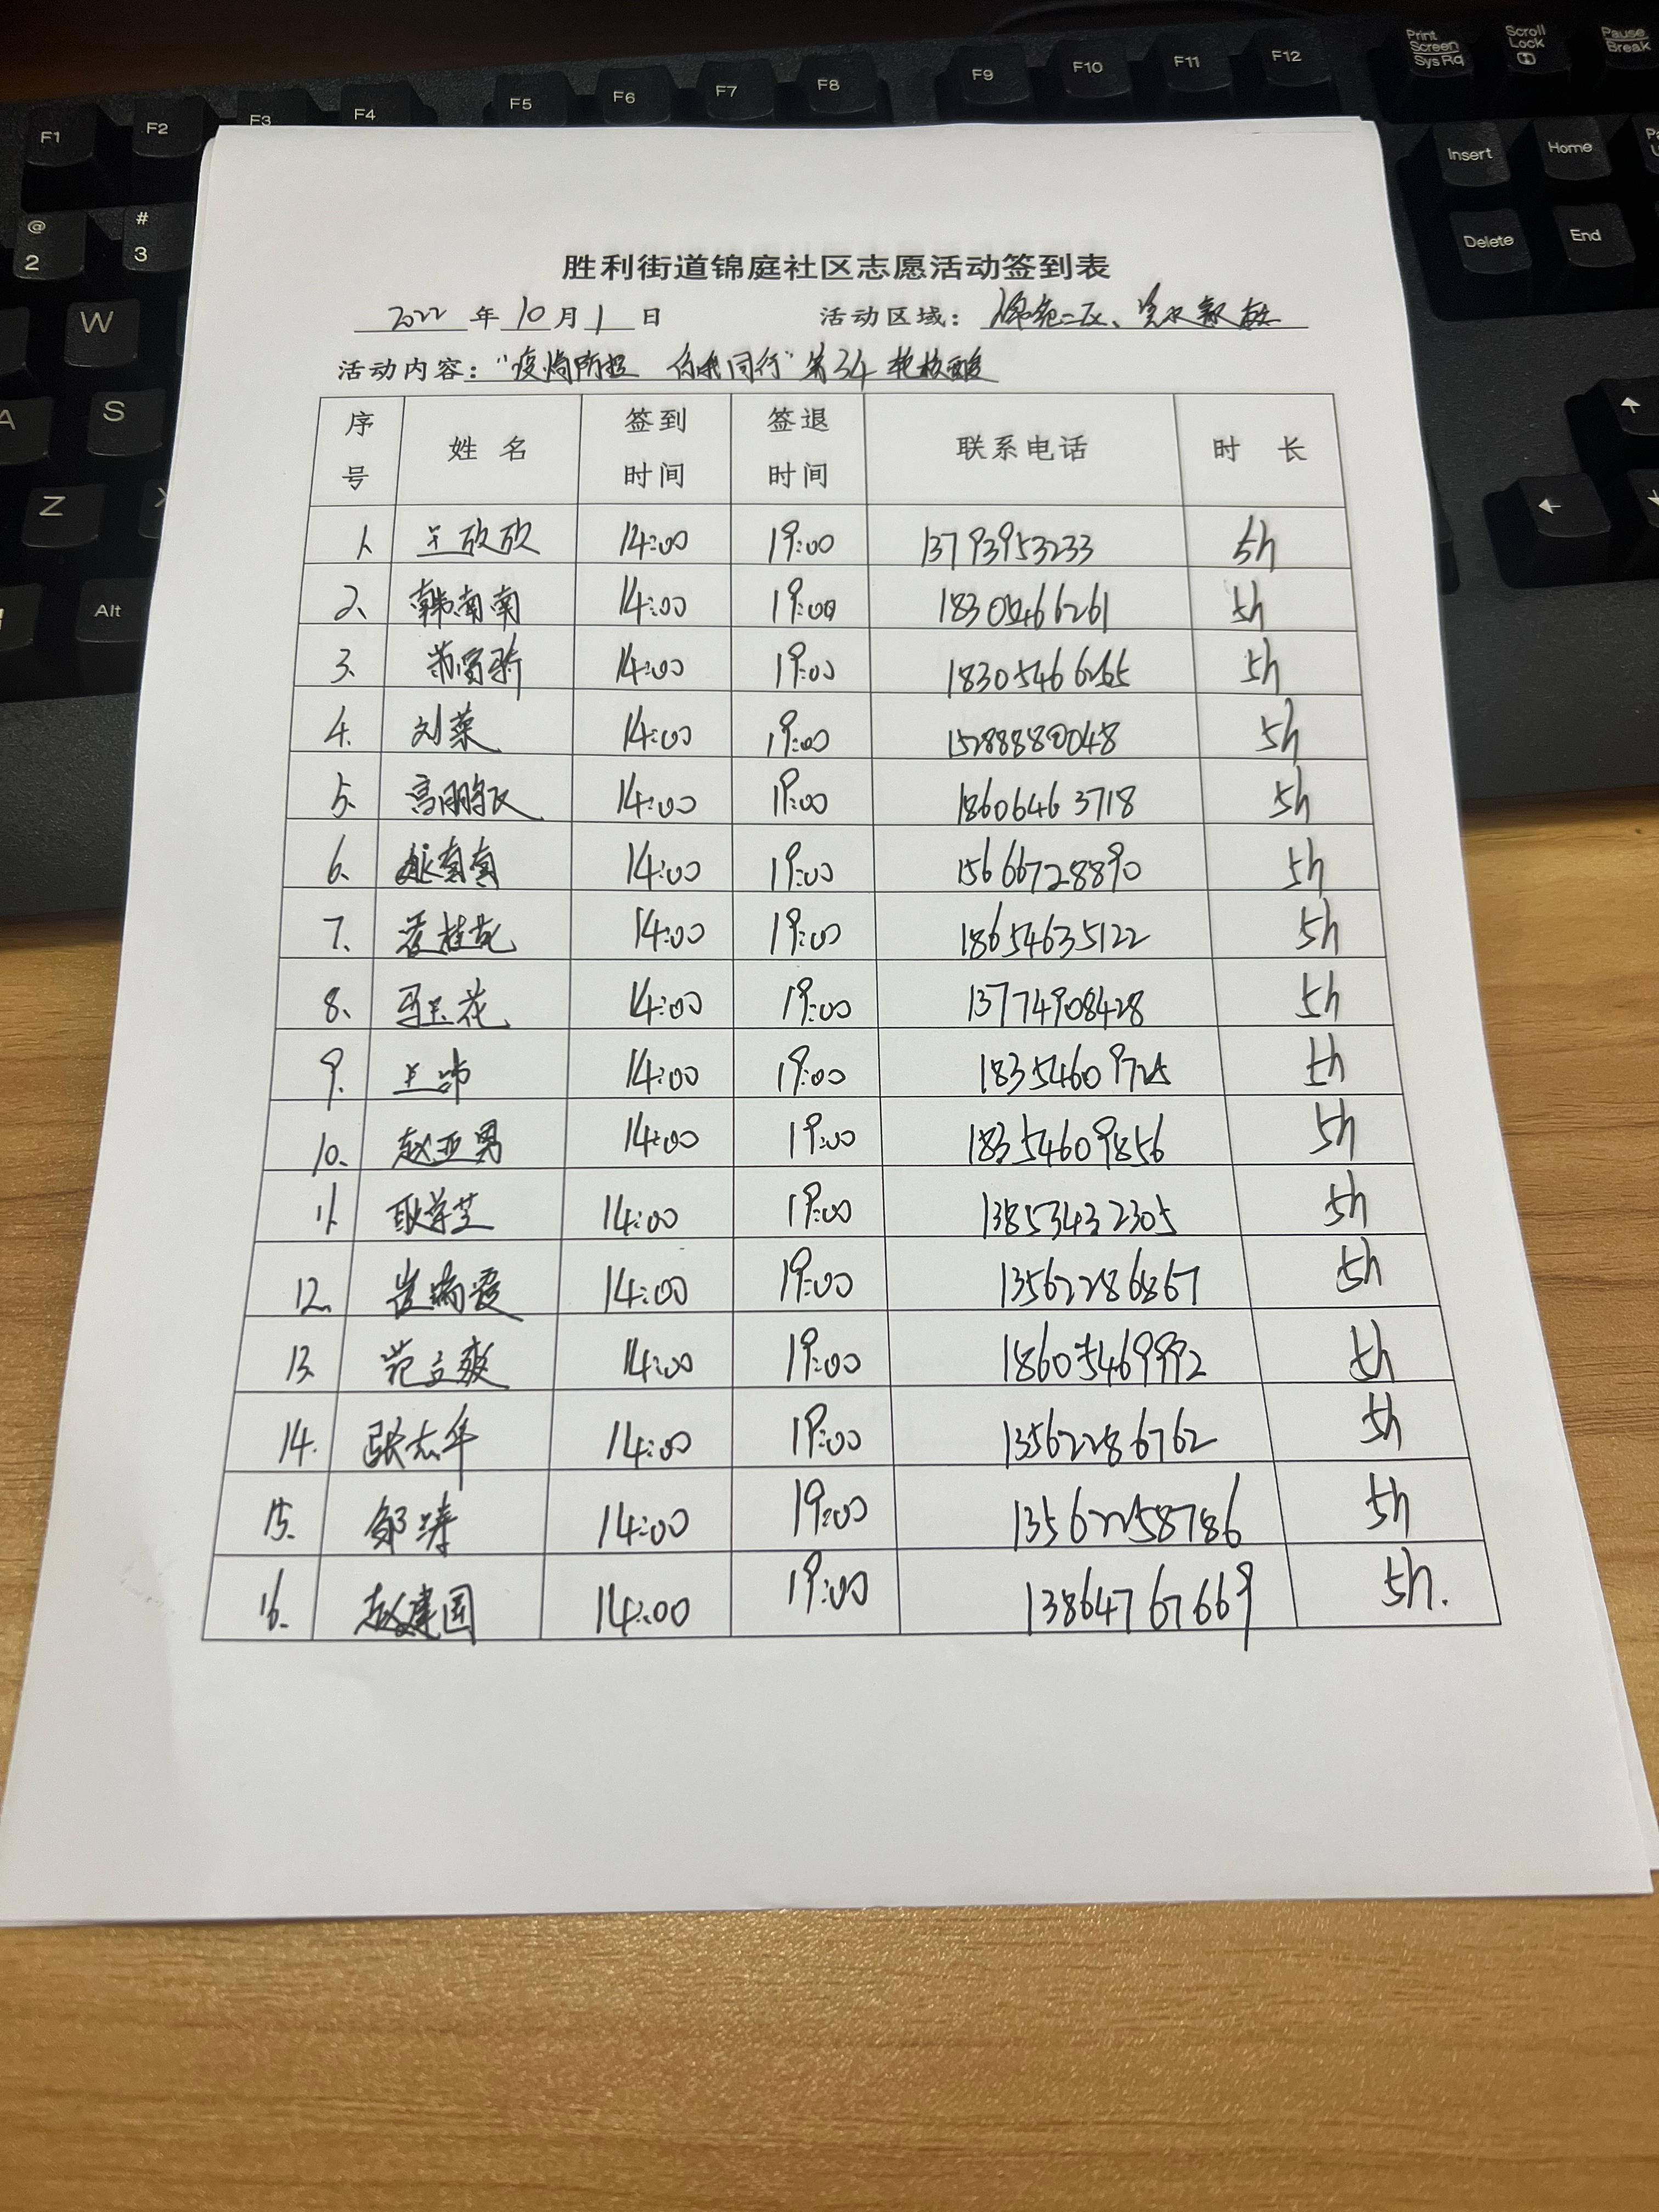 Print Screen SysRq
Scroll Lock
Pause Break
F1 F2 F3 F4 F5 F6 F7 F8 F9 F10 F11 F12
Insert Home
Delete End
@ 2
# 3
W
A S
Z
Alt
胜利街道锦庭社区志愿活动签到表
2022 年 10 月 1 日 活动区域: 锦苑二区、
活动内容: "疫情防控 你我同行" 第34轮核酸
序号 姓名 签到时间 签退时间 联系电话 时长
1. 14:00 19:00 13793953233 5h
2. 韩南南 14:00 19:00 18305466261 5h
3. 14:00 19:00 5h
4. 刘荣 14:00 19:00 15288880048 5h
5. 14:00 19:00 18606463718 5h
6. 14:00 19:00 15666728890 5h
7. 14:00 19:00 18654635122 5h
8. 马玉花 14:00 19:00 13774908428 5h
9. 14:00 19:00 18354609725 5h
10. 赵亚男 14:00 19:00 18354609856 5h
11. 耿学芝 14:00 19:00 13853432305 5h
12. 14:00 19:00 13562286867 5h
13. 范立爽 14:00 19:00 18605469992 5h
14. 张志华 14:00 19:00 13562286762 5h
15. 邹涛 14:00 19:00 13562258786 5h
16. 赵建国 14:00 19:00 13864767669 5h.